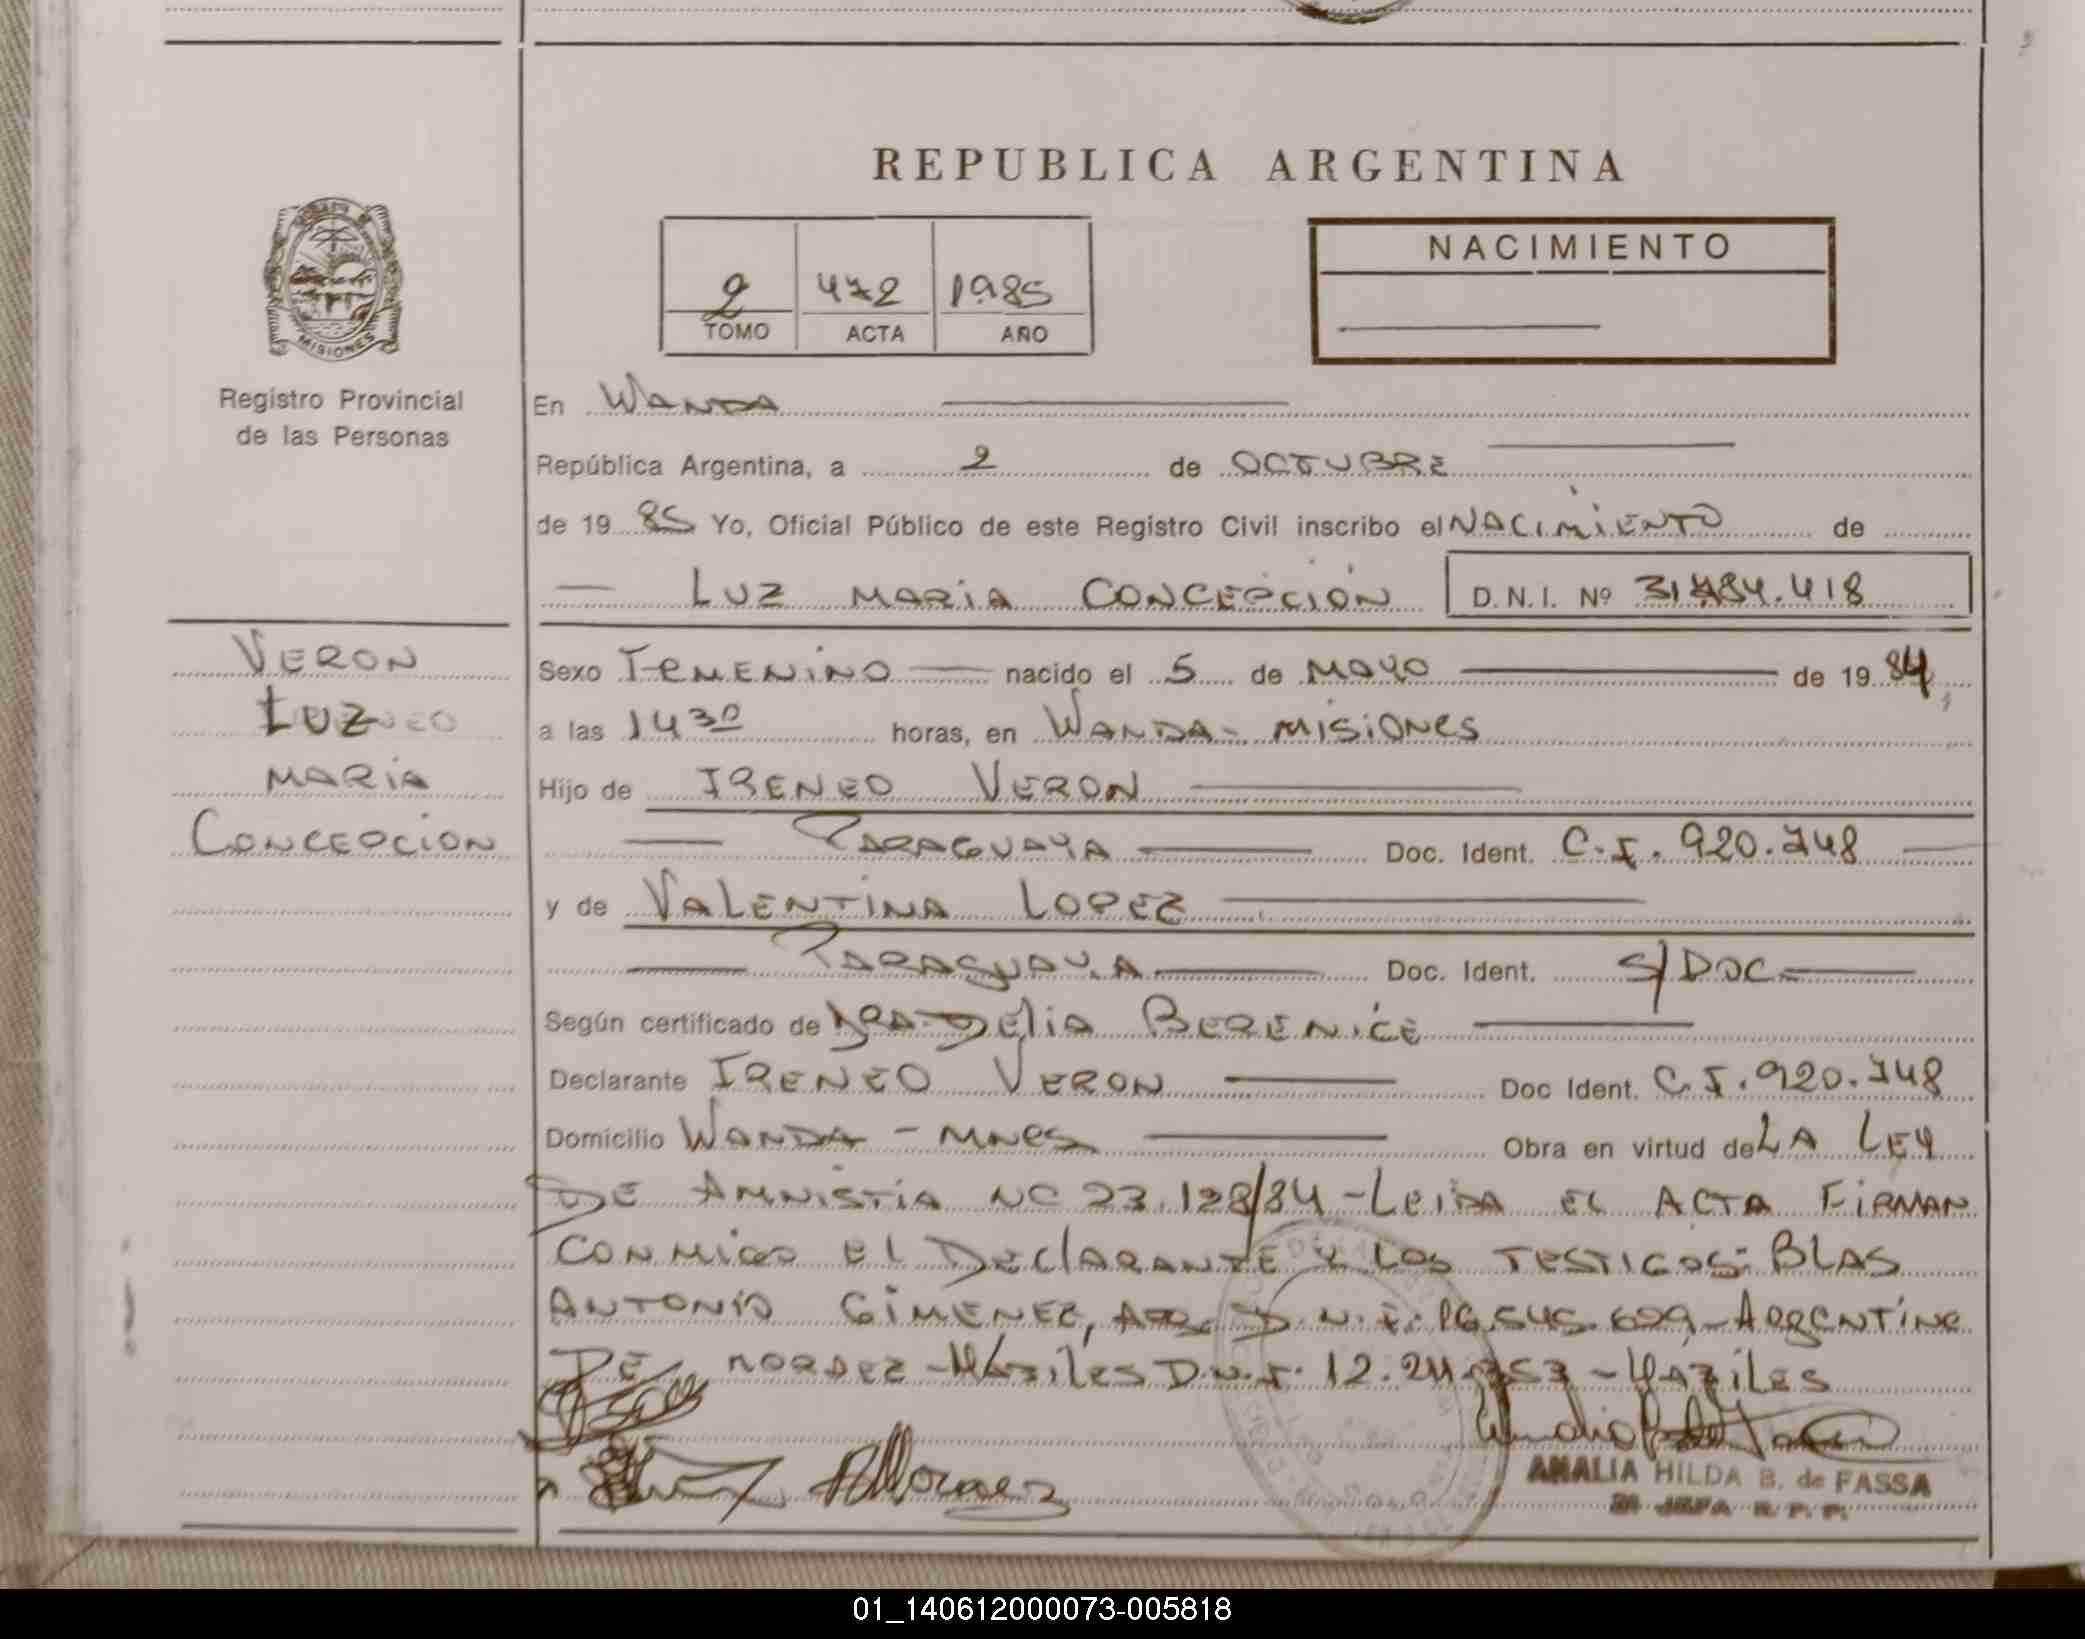 REPUBLICA ARGENTINA
MISIONES
Registro Provincial
de las Personas
2 472 1985
TOMO ACTA AÑO
NACIMIENTO
En WANDA
República Argentina, a 2 de OCTUBRE
de 19 85 Yo, Oficial Público de este Registro Civil inscribo el NACIMIENTO de
LUZ MARIA CONCEPCION D.N.I. Nº 31.484.418
VERON
LUZ
MARIA
CONCEPCION
Sexo FEMENINO nacido el 5 de MAYO de 19 84
a las 14 30 horas, en WANDA - MISIONES
Hijo de IRENEO VERON
PARAGUAYA Doc. Ident. C.I. 920.748
y de VALENTINA LOPEZ
PARAGUAYA Doc. Ident. S/DOC
Según certificado de DRA. DELIA BERENICE
Declarante IRENEO VERON Doc Ident. C.I. 920.748
Domicilio WANDA - MNES Obra en virtud de LA LEY
DE AMNISTIA NC 23.128/84 - LEIDA EL ACTA FIRMAN
CONMIGO EL DECLARANTE Y LOS TESTIGOS: BLAS
ANTONIO GIMENEZ, D.N.I. 16.545.609 - ARGENTINO
DE MORAEZ D.N.I.
AMALIA HILDA B. de FASSA
JEFA R. P. P.
01_140612000073-005818